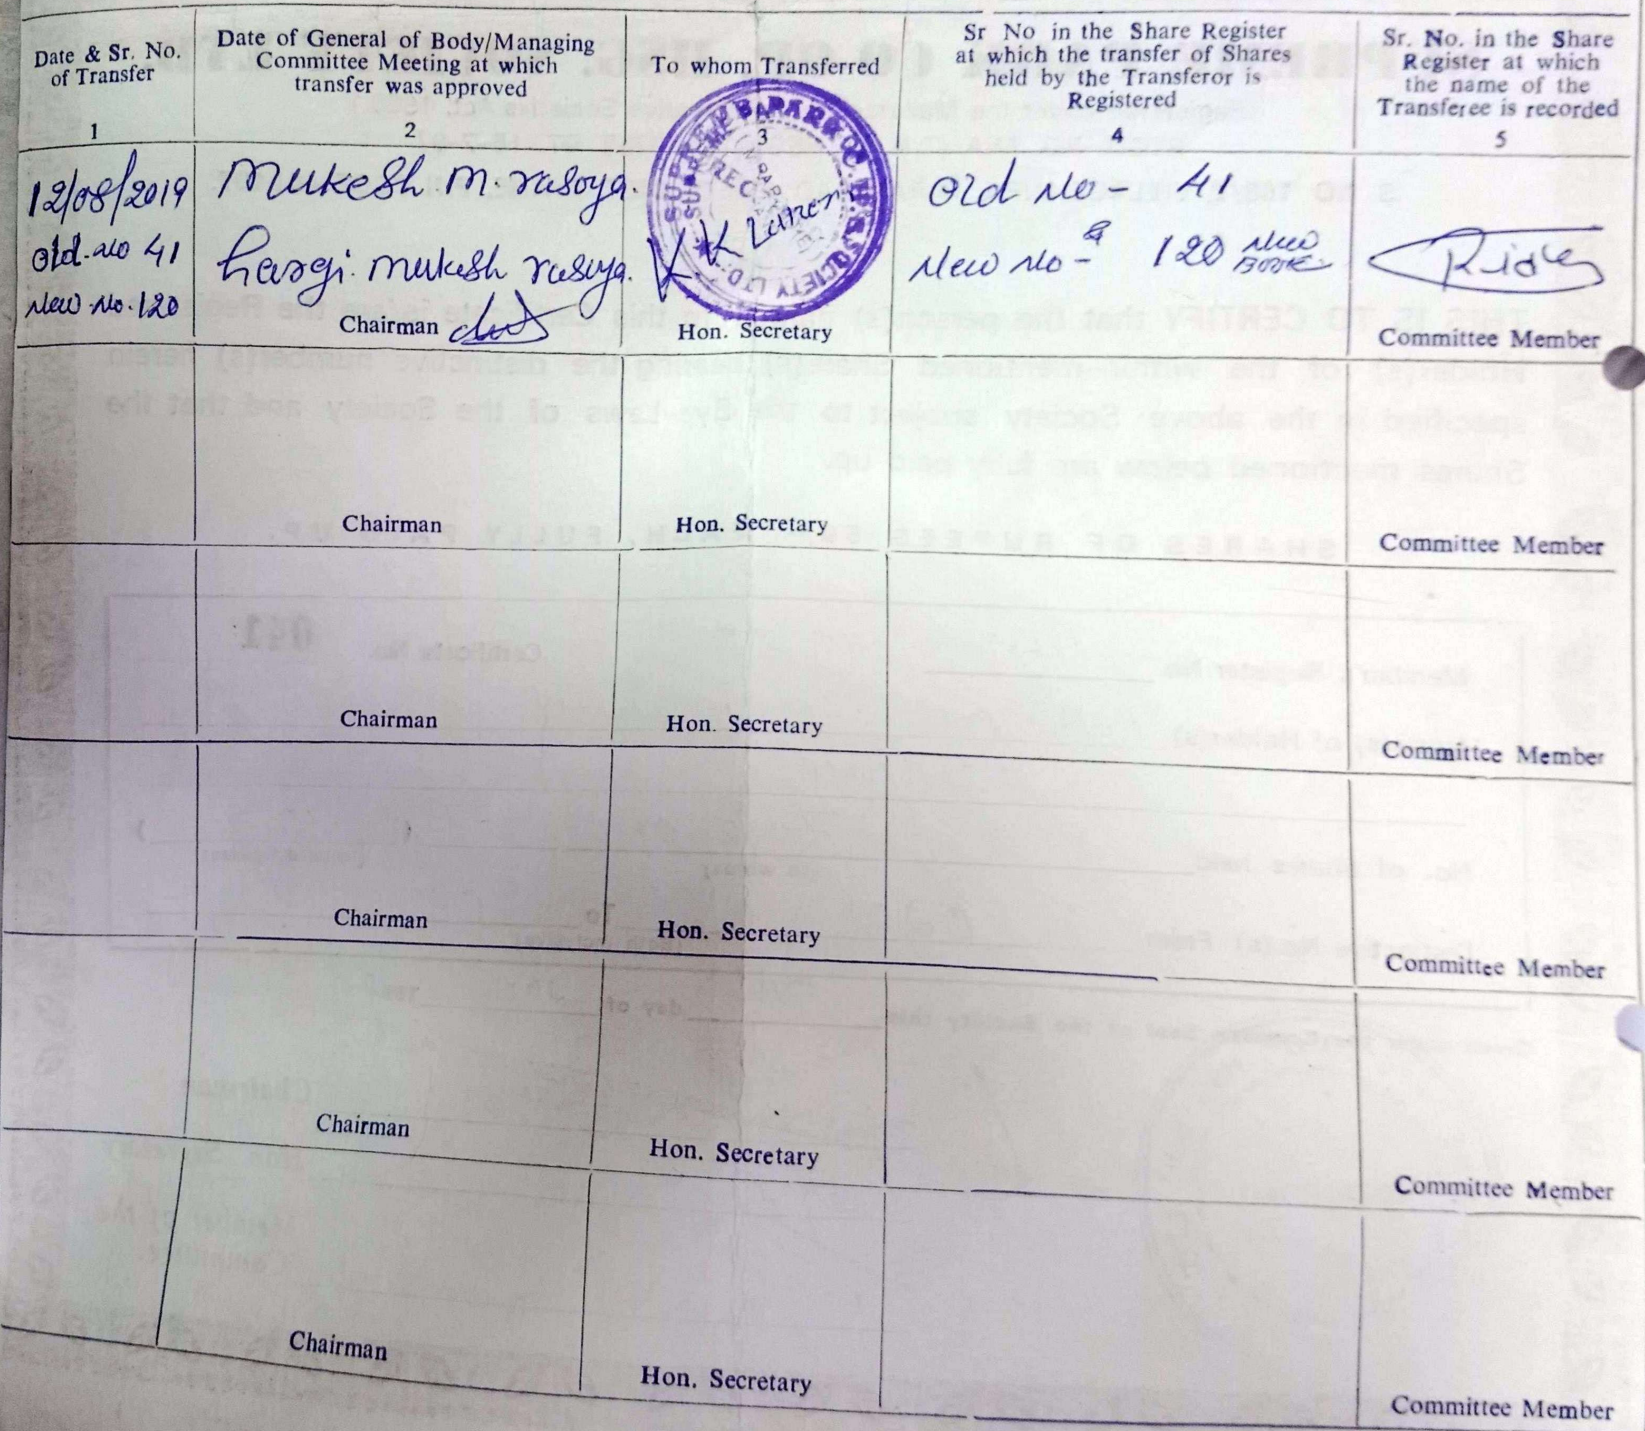 Date & Sr. No.
of Transfer
1
Date of General of Body/Managing
Committee Meeting at which
transfer was approved
2
To whom Transferred
3
Sr No in the Share Register
at which the transfer of Shares
held by the Transferor is
Registered
4
Sr. No. in the Share
Register at which
the name of the
Transferee is recorded
5
12/08/2019
Old. No 41
New. No. 120
Mukesh. M. rasoya.
mukesh rasoya.
Chairman
SUPREME PARK CO. SOCIETY LTD.
Hon. Secretary
Old No - 41
New No - 120 New
BOOK
Committee Member
Chairman
Hon. Secretary
Committee Member
Chairman
Hon. Secretary
Committee Member
Chairman
Hon. Secretary
Committee Member
Chairman
Hon. Secretary
Committee Member
Chairman
Hon. Secretary
Committee Member